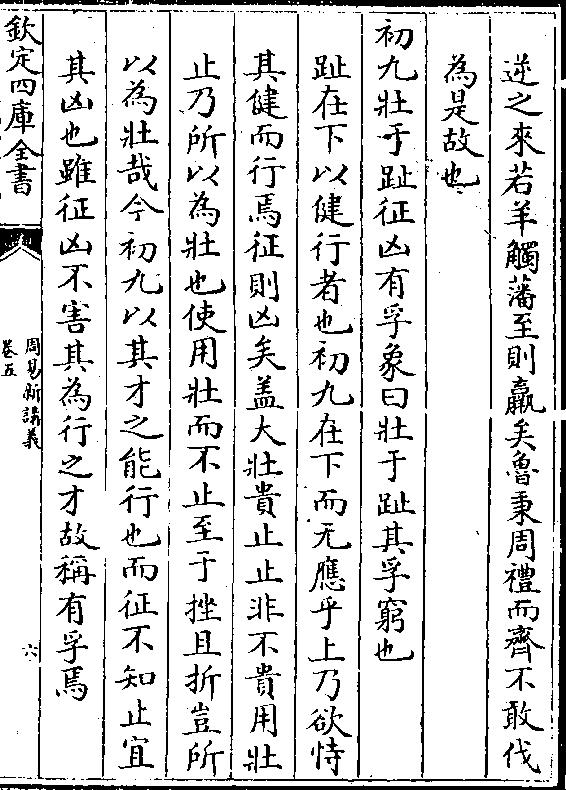 逆之來若羊觸藩至則羸矣魯秉周禮而齊不敢伐
為是故也
初九壯于趾征凶有孚象曰壯于趾其孚窮也
趾在下以健行者也初九在下而无應乎上乃欲恃
其健而行焉征則凶矣盖大壯貴止止非不貴用壯
止乃所以為壯也使用壯而不止至于挫且折豈所
以為壯哉今初九以其才之能行也而征不知止宜
其凶也雖征凶不害其為行之才故稱有孚焉
欽定四庫全書
周易新講義
卷五
六